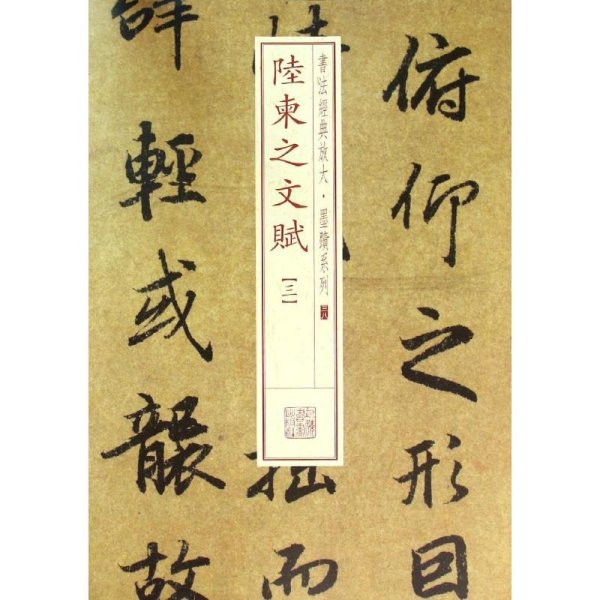 俯仰之形因
拙而
辭輕或襲故
書法經典放大・墨蹟系列
三八
陸柬之文賦
【三】